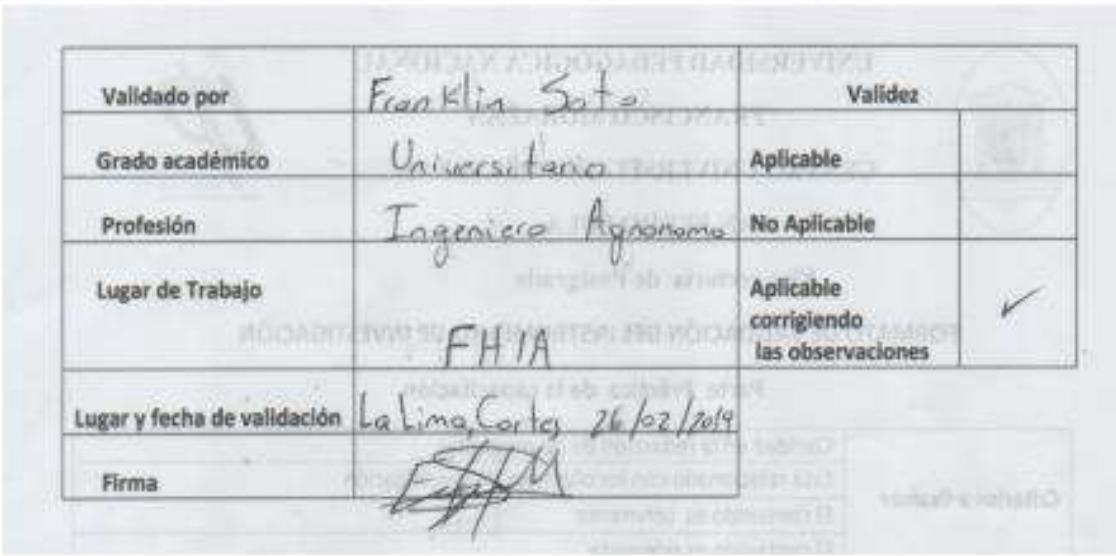 Validado por Franklin Soto Validez
Grado académico Universitario Aplicable
Profesión Ingeniero Agronomo No Aplicable
Lugar de Trabajo FHIA Aplicable
corrigiendo
las observaciones ✓
Lugar y fecha de validación La Lima, Cortes 26/02/2019
Firma